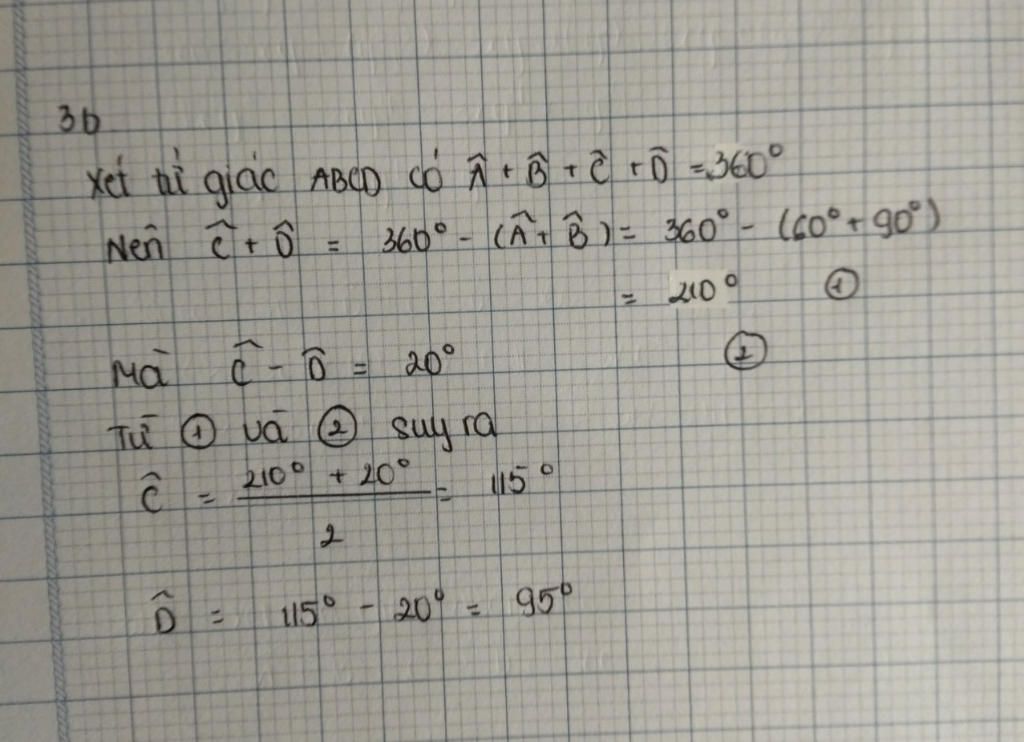 3b
Xét tứ giác ABCD có Â + B̂ + Ĉ + D̂ = 360°
Nên Ĉ + D̂ = 360° - (Â + B̂) = 360° - (60° + 90°)
= 210° ①
Mà Ĉ - D̂ = 20° ②
Từ ① và ② suy ra
Ĉ = (210° + 20°)/2 = 115°
D̂ = 115° - 20° = 95°